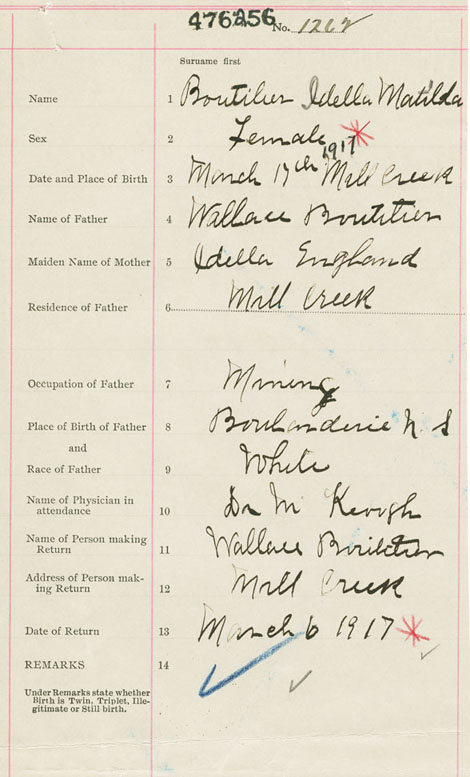 476256 No. 1262
Surname first
Name 1 Boutilier Idella Matilda
Sex 2 Female
1917
Date and Place of Birth 3 March 17th Mill Creek
Name of Father 4 Wallace Boutilier
Maiden Name of Mother 5 Idella England
Residence of Father 6 Mill Creek
Occupation of Father 7 Mining
Place of Birth of Father 8 Boulanderie N S
and
Race of Father 9 White
Name of Physician in
attendance 10 Dr M Keough
Name of Person making
Return 11 Wallace Boutilier
Address of Person mak-
ing Return 12 Mill Creek
Date of Return 13 March 6 1917
REMARKS 14
Under Remarks state whether
Birth is Twin, Triplet, Ille-
gitimate or Still birth.